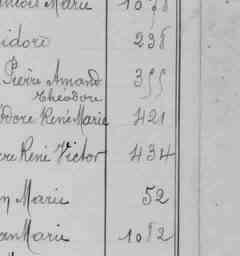 Marie 1078
idore 238
Pierre Amand 355
Théodore
dore René Marie 421
re René Victor 434
n Marie 52
an Marie 1082